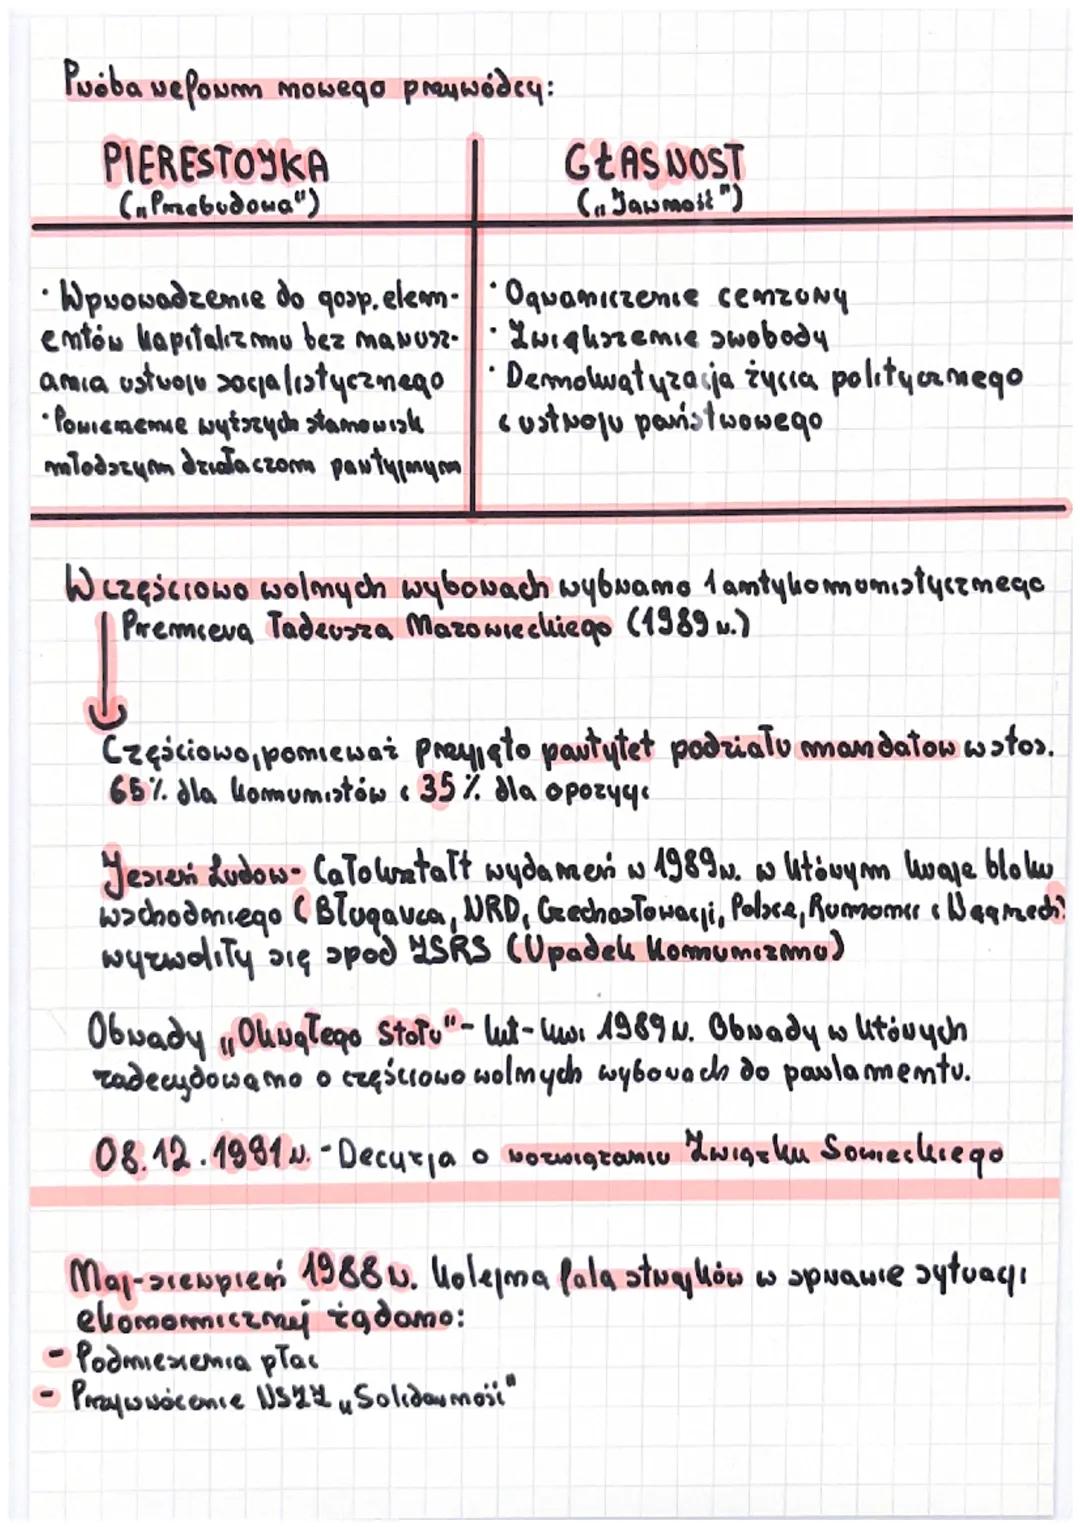 Próba reform nowego przywódcy:
PIERESTOJKA
("Przebudowa")
GŁASNOST
("Jawność")
· Wprowadzenie do gosp. elem-
entów kapitalizmu bez narusz-
ania ustroju socjalistycznego
· Powierzenie wyższych stanowisk
młodszym działaczom partyjnym
· Ograniczenie cenzury
· Zwiększenie swobody
· Demokratyzacja życia politycznego
i ustroju państwowego
W częściowo wolnych wyborach wybrano 1 antykomunistycznego
Premiera Tadeusza Mazowieckiego (1989 r.)
Częściowo, ponieważ przyjęto partytet podziału mandatow w stos.
65% dla komunistów i 35% dla opozycji
Jesień Ludow - Całokształt wydarzeń w 1989r. w którym kraje bloku
wschodniego (Bługarca, NRD, Czechosłowacji, Polsce, Rumunii i Węgrzech)
wyzwoliły się spod ZSRS (Upadek komunizmu)
Obrady "Okrągłego Stołu" - lut-kwi 1989 r. Obrady w których
zadecydowano o częściowo wolnych wyborach do parlamentu.
08.12.1991 r. - Decyzja o rozwiązaniu Związku Sowieckiego
Maj-sierpień 1988 r. kolejna fala strajków w sprawie sytuacji
ekonomicznej żądano:
- Podniesienia płac
- Przywrócenie NSZZ "Solidarność"